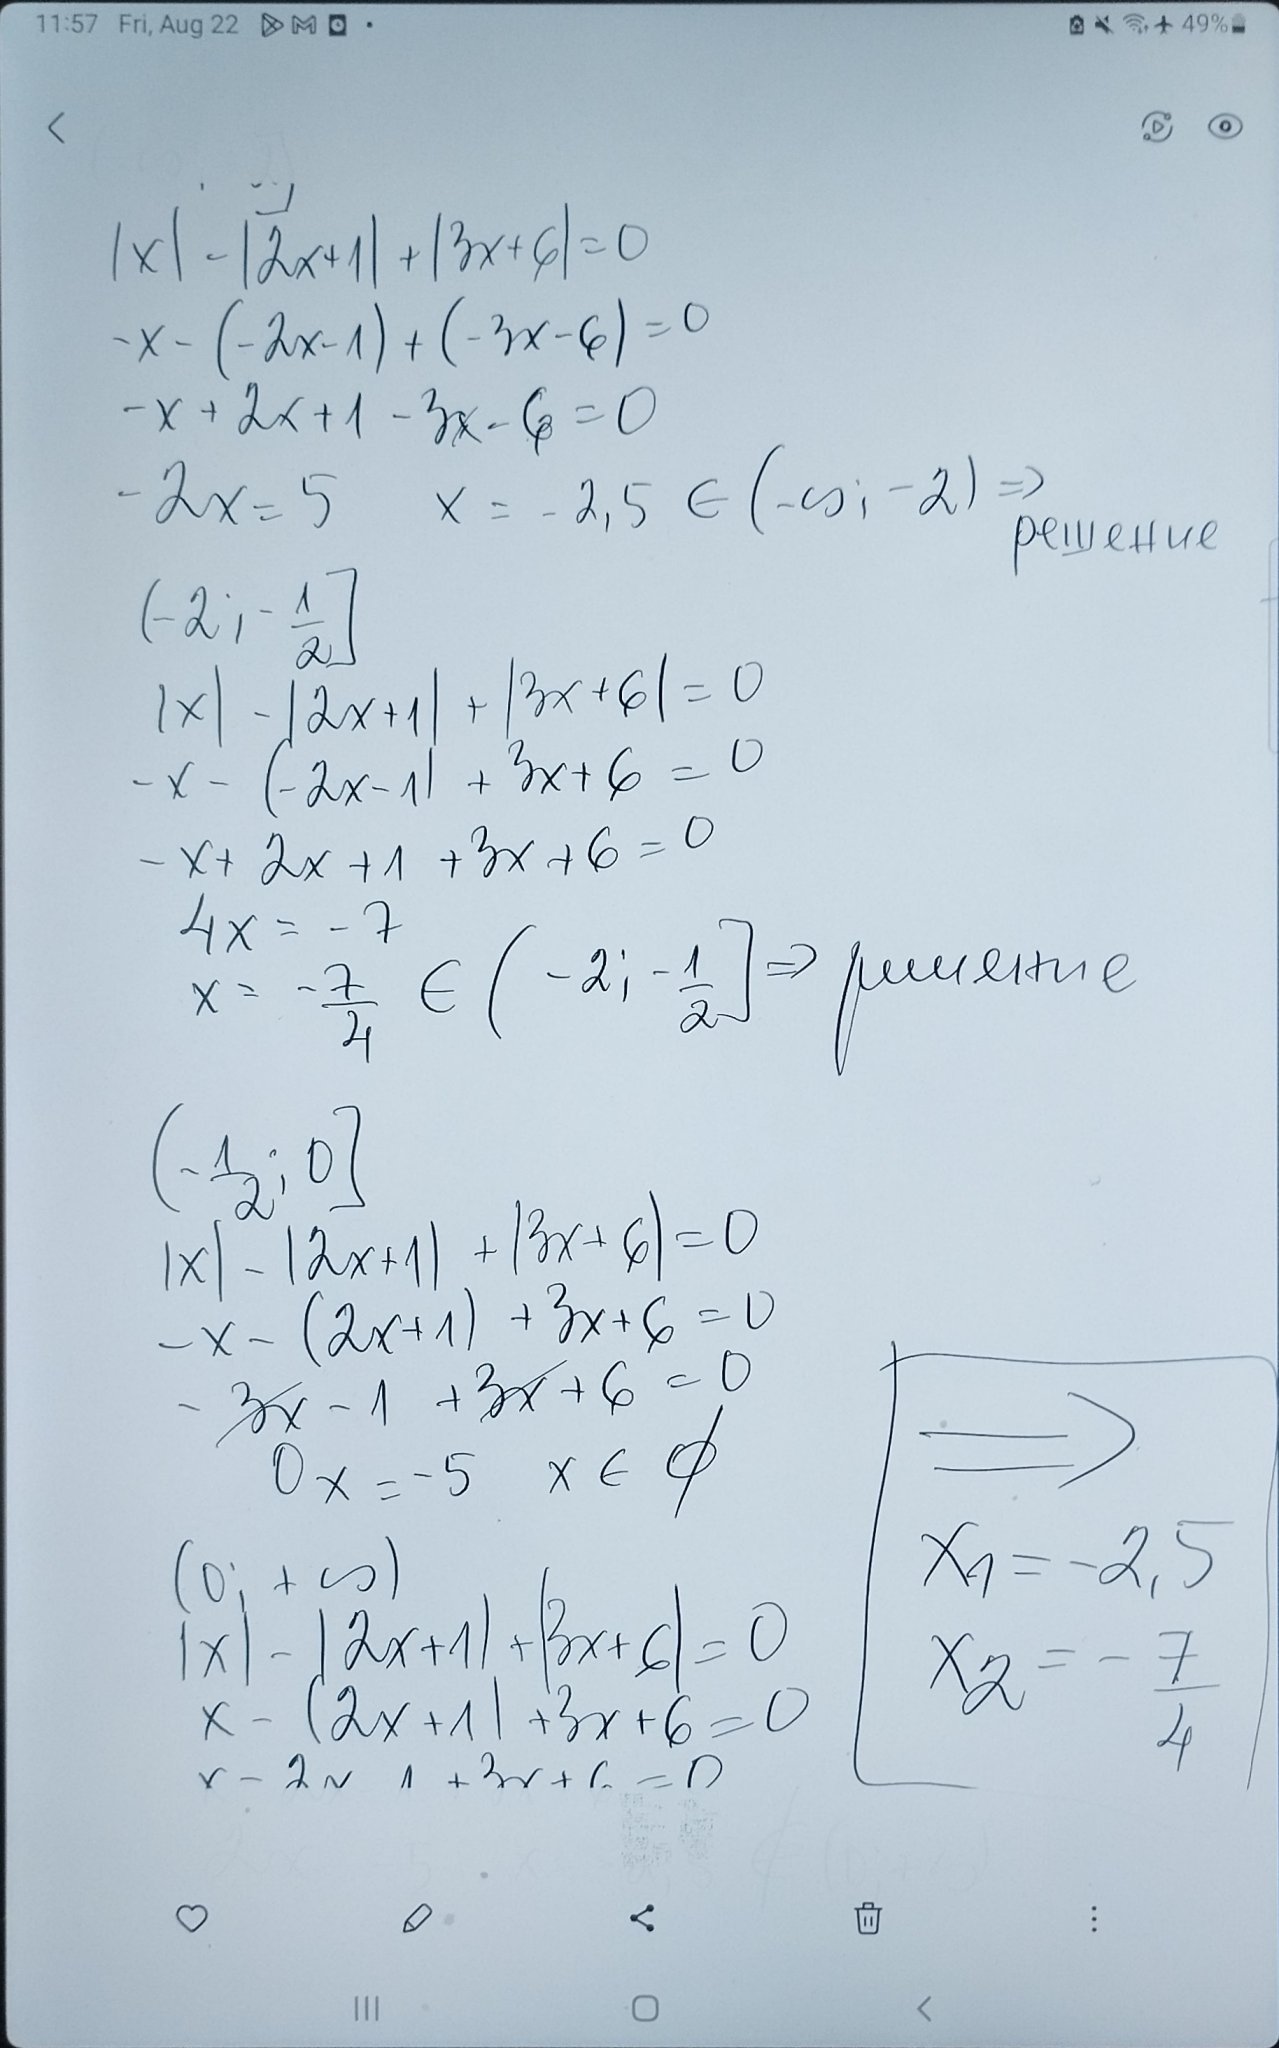 11:57 Fri, Aug 22
49%
|x| - |2x+1| + |3x+6| = 0
-x - (-2x-1) + (-3x-6) = 0
-x + 2x + 1 - 3x - 6 = 0
-2x = 5 x = -2,5 ∈ (-∞; -2) ⇒
решение
(-2; -1/2]
|x| - |2x+1| + |3x+6| = 0
-x - (-2x-1) + 3x+6 = 0
-x + 2x + 1 + 3x + 6 = 0
4x = -7
x = -7/4 ∈ (-2; -1/2] ⇒ решение
(-1/2; 0]
|x| - |2x+1| + |3x+6| = 0
-x - (2x+1) + 3x+6 = 0
-3x - 1 + 3x + 6 = 0
0x = -5 x ∈ ∅
(0; +∞)
|x| - |2x+1| + |3x+6| = 0
x - (2x+1) + 3x+6 = 0
x - 2x 1 + 3x + 6 = 0
⇒
x1 = -2,5
x2 = -7/4